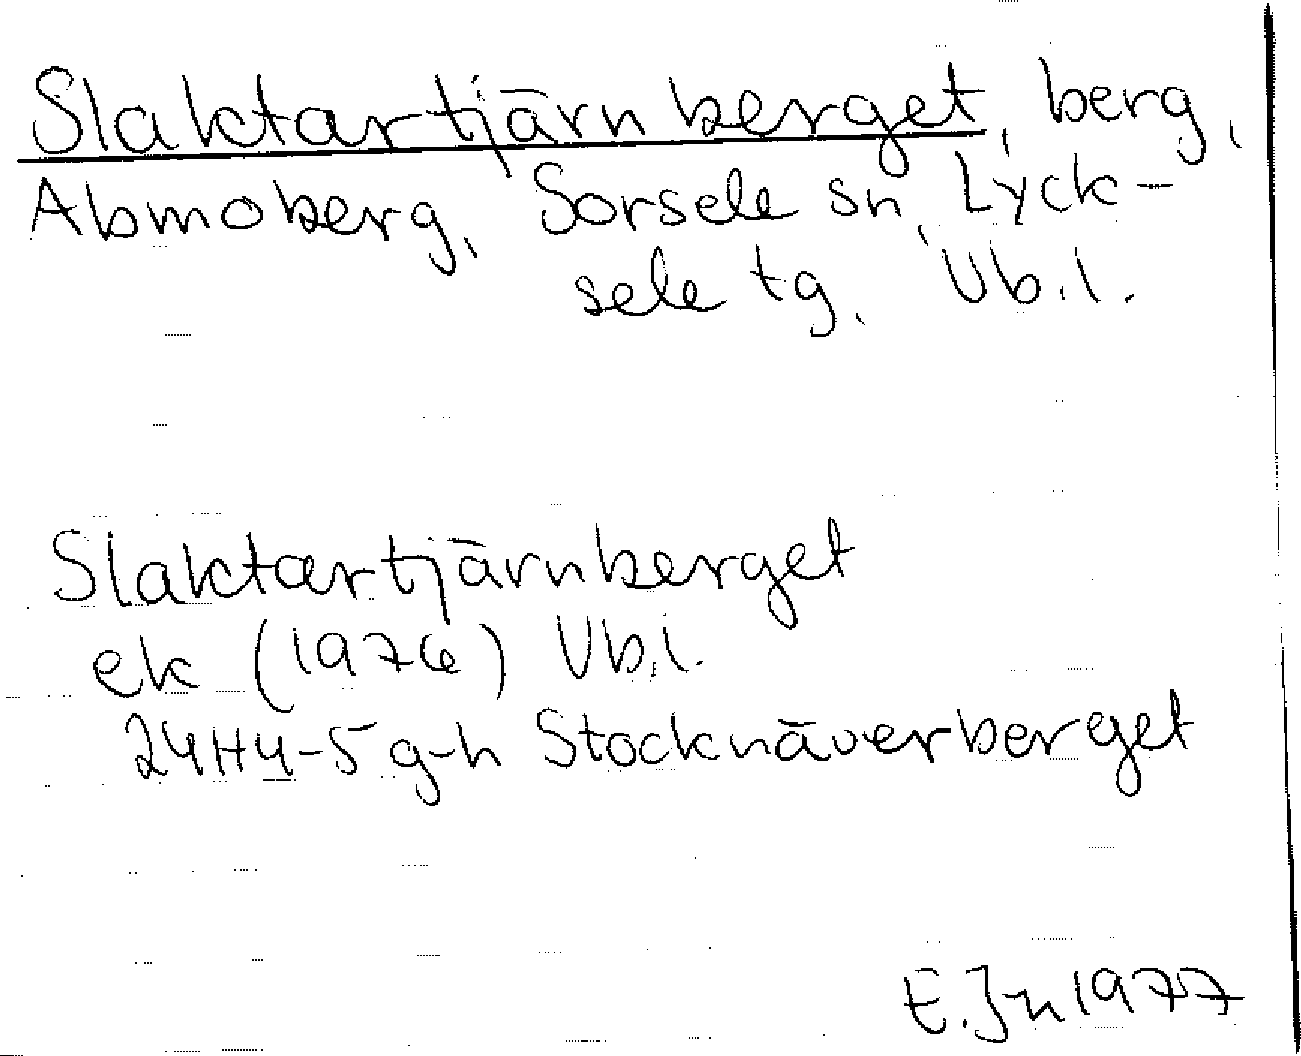 Slaktartjärnberget, berg,
Abmoberg, Sorsele sn, Lyck-
sele tg, Vb.l.
Slaktartjärnberget
ek (1976) Vb.l.
24H4-5 g-h Stocknäverberget
E.Jn 1977